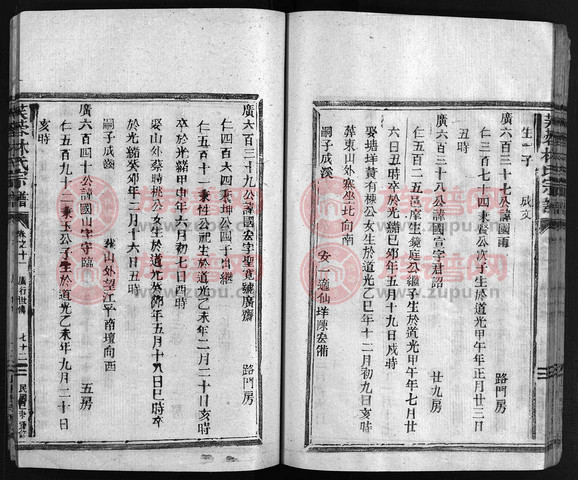 生一子 成文
廣六百三十七公諱國雨 路門房
仁三百七十四秉賢公次子生於道光甲午年正月廿三日
亥時
廣六百三十八公諱國宣字君詔 廿九房
仁五百二五邑庠生鏡庭公繼子生於道光甲午年七月廿
六日丑時卒於光緒癸卯年五月十九日戌時
娶塘垟黃有棟公女生於道光乙巳年十二月初九日亥時
葬東山外寮坐北向南
嗣子成溪 女一適仙垟陳
廣六百三十九公諱國奎字聖寬號廣齋 路門房
仁四百六四秉坤公四子出繼
仁五百十二秉性公祀生於道光乙未年二月二十日亥時
卒於光緒甲申年六月初七日酉時
娶山外蔡時桃公女生於道光癸卯年五月十八日巳時卒
於光緒癸卯年二月十六日時
嗣子成滔 葬山外望江平南壇向西
廣六百四十公諱國山字守臨 五房
仁五百九十二秉玉公子生於道光乙未年九月二十日
亥時
林氏宗譜
卷之十一 廣行世傳 七十二
族谱网
www.zupu.cn